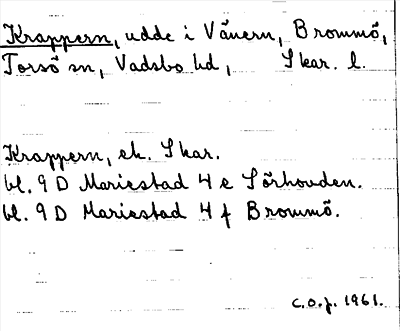 Krappern, udde i Vänern, Brommö,
Torsö sn, Vadsbo hd, Skar. l.
Krappern, ek. Skar.
bl. 9 D Mariestad 4 e Sörhovden.
bl. 9 D Mariestad 4 f Brommö.
C.O.J. 1961.